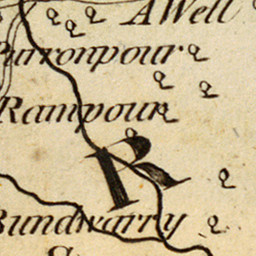 A Well
Purronpour
Rampour
R
Bundwarry